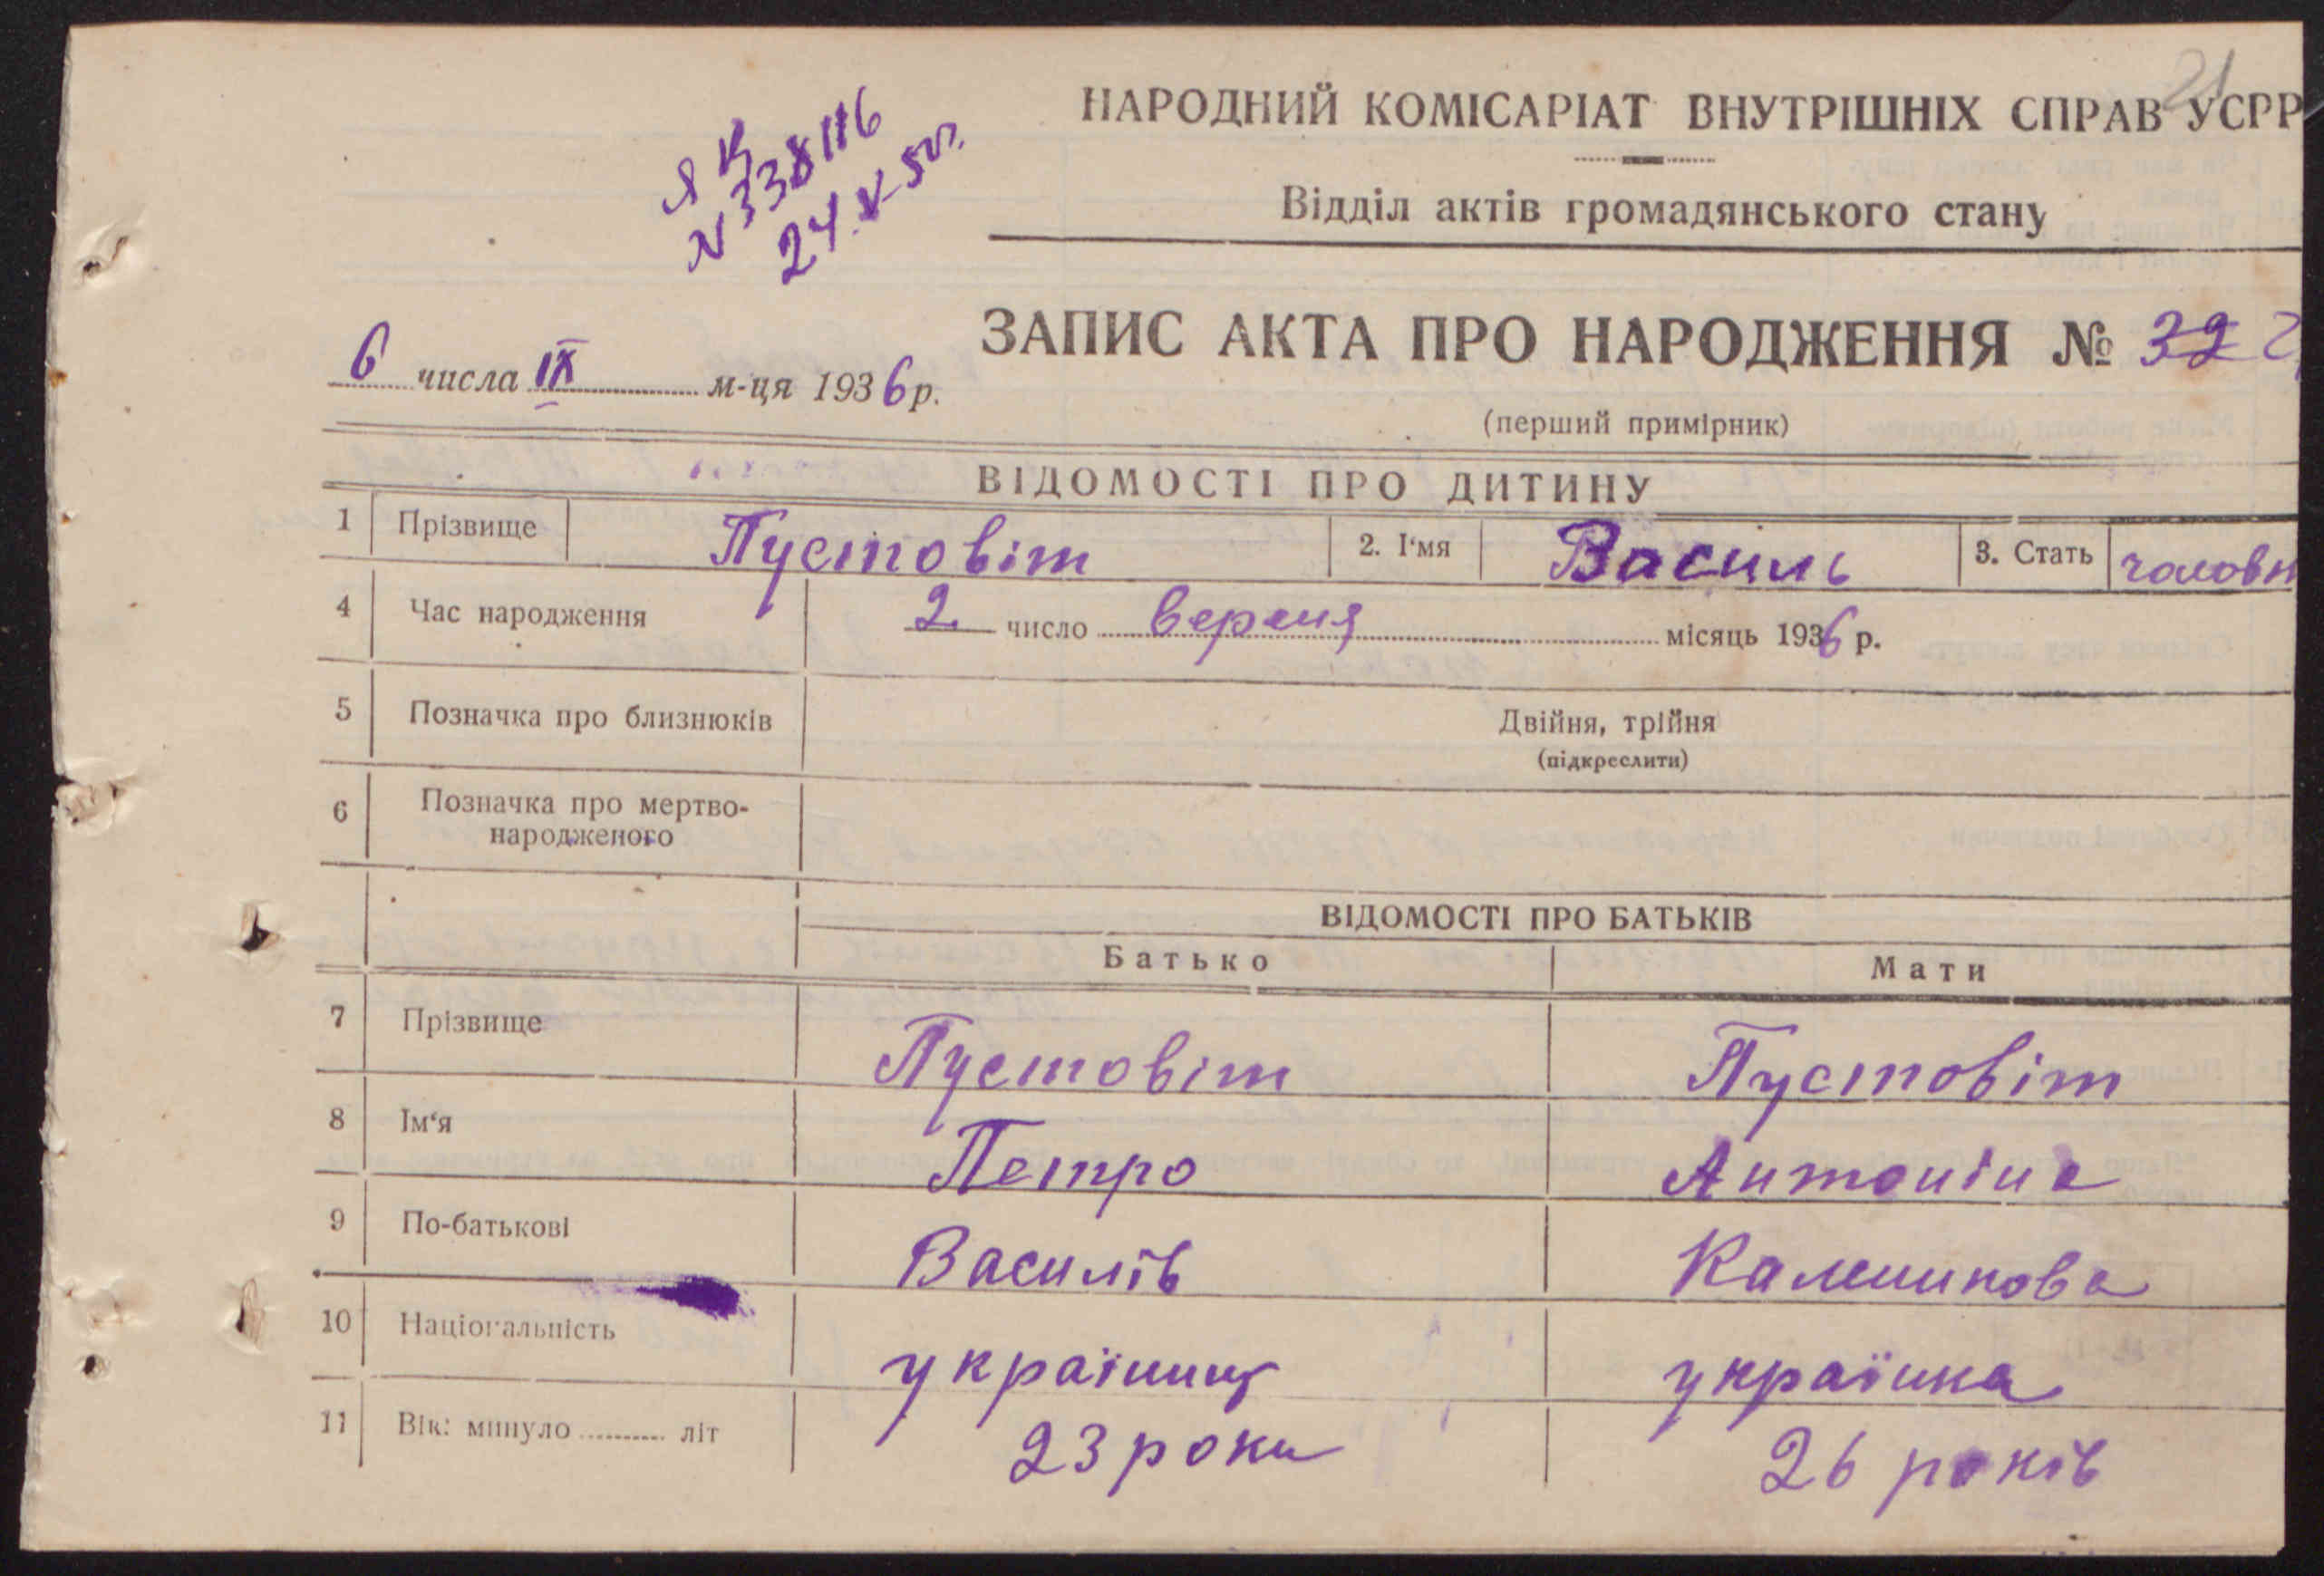 21
НАРОДНИЙ КОМІСАРІАТ ВНУТРІШНІХ СПРАВ УСРР
Відділ актів громадянського стану
ЯЦ
N 338116
24.V-50г.
ЗАПИС АКТА ПРО НАРОДЖЕННЯ № 32
6 числа IX м-ця 1936 р.
(перший примірник)
ВІДОМОСТІ ПРО ДИТИНУ
1 Прізвище Пустовіт 2. І'мя Василь 3. Стать чоловн
4 Час народження 2 число вересня місяць 1936 р.
5 Позначка про близнюків Двійня, трійня
(підкреслити)
6 Позначка про мертво-
народженого
ВІДОМОСТІ ПРО БАТЬКІВ
Батько Мати
7 Прізвище Пустовіт Пустовіт
8 Ім'я Петро Антоніна
9 По-батькові Василів
10 Національність українец українка
11 Вік: минуло .......... літ 23 роки 26 років